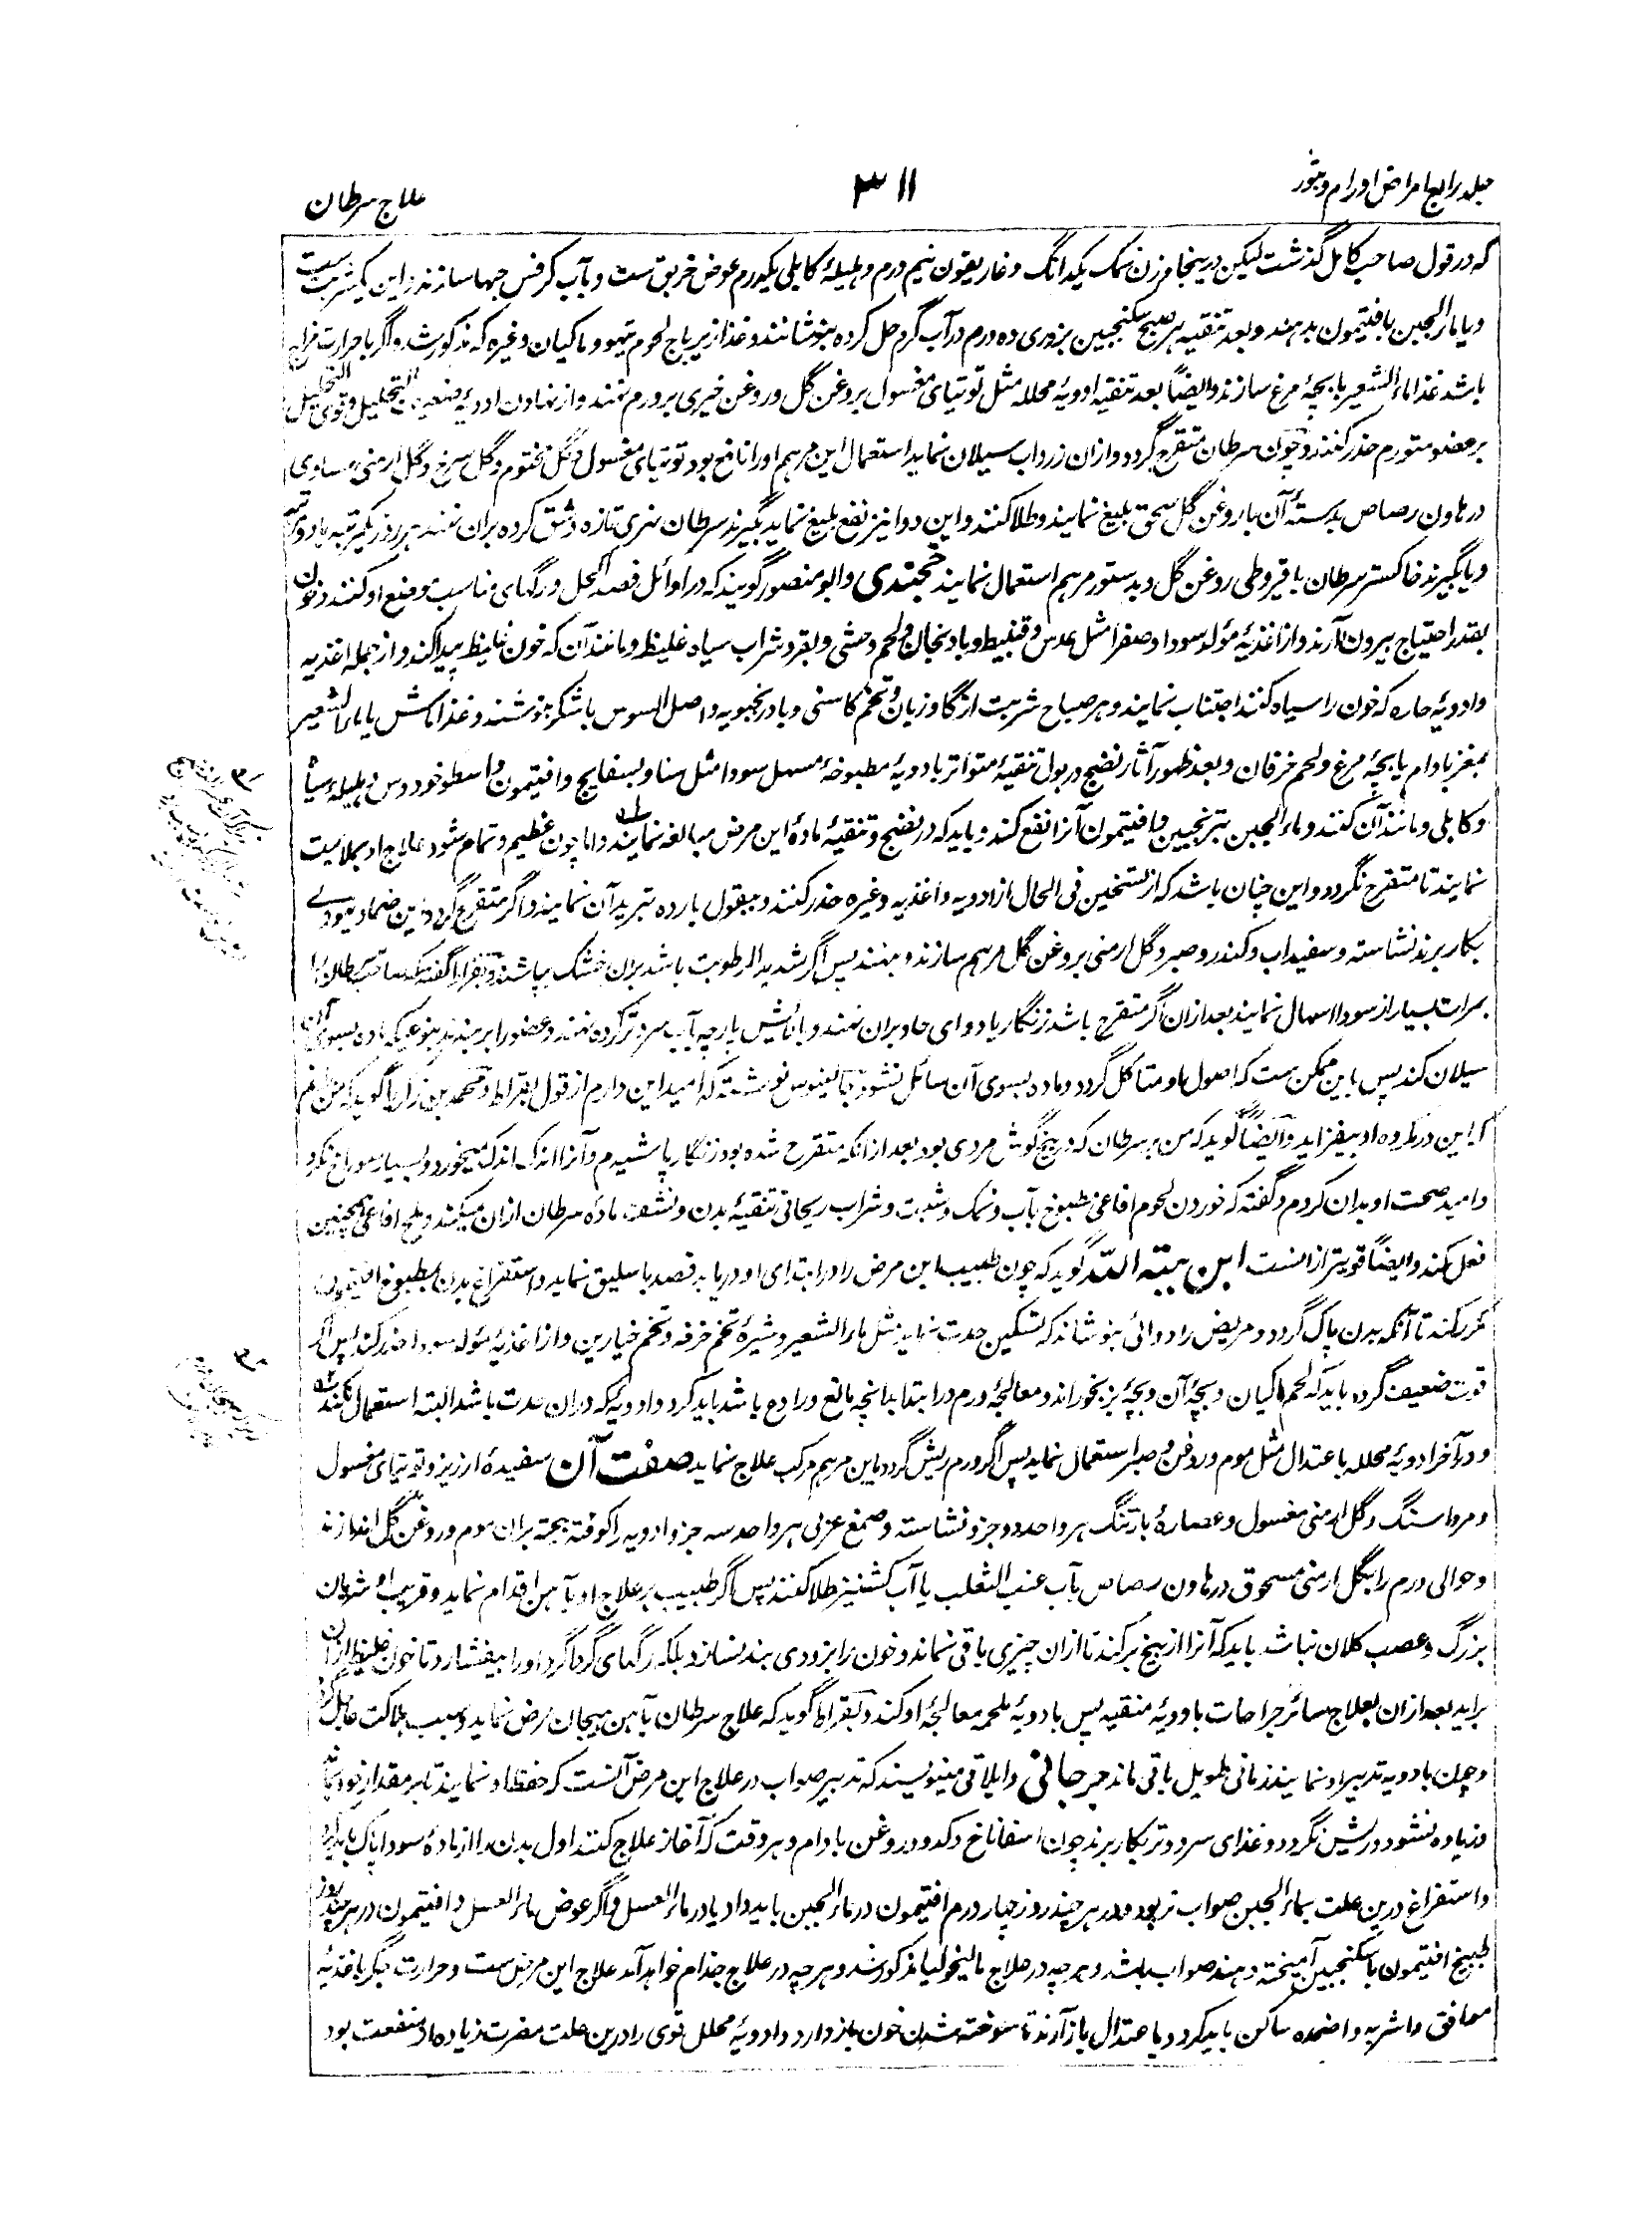 جلد رابع امراض اورام و بثور
۳۱۱
علاج سرطان
که در قول صاحب کامل گذشت لیکن درینجا وزن نمک یکدانگ و غاریقون نیم درم و هلیلۀ کابلی یکدرم عوض خربق ست و بآب کرفس حبها سازند و این یکشربت ست
و یا ماء الجبن بافتیمون بدهند و بعد تنقیه هر صبح سکنجبین بزوری ده درم در آب گرم حل کرده بنوشانند و غذا زیرباج لحوم تیهو و ماکیان و غیره که مذکور شد و اگر با حرارت مزاج
باشد غذا ماء الشعیر با بچۀ مرغ سازند و ایضاً بعد تنقیه ادویۀ محلله مثل توتیای مغسول بروغن گل و روغن خیری بر ورم نهند و از نهادن ادویۀ ضعیف التحلیل و قوی التحلیل
بر عضو متورم حذر کنند و چون سرطان متقرح گردد و ازان زرداب سیلان نماید استعمال این مرهم او را نافع بود توتیای مغسول و گل مختوم و گل سرخ و گل ارمنی مساوی
در هاون رصاص بدستۀ آن با روغن گل سحق بلیغ نمایند و طلا کنند و این دوا نیز نفع بلیغ نماید بگیرند سرطان نهری تازه و شق کرده بران نهند هر روز یکمرتبه یا دو مرتبه
و یا بگیرند خاکستر سرطان با قیروطی روغن گل و بدستور مرهم استعمال نمایند خجندی و ابو منصور گویند که در اوائل فصد اکحل و رگهای مناسب موضع او کنند و خون
بقدر احتیاج بیرون آرند و از اغذیۀ مولد سودا و صفرا مثل عدس و قنبیط و بادنجان و لحم وحشی و بقر و شراب سیاه غلیظ و مانند آن که خون غلیظ پیدا کند و از جمله اغذیه
و ادویۀ حاره که خون را سیاه کنند اجتناب نمایند و هر صباح شربت از گاوزبان و تخم کاسنی و بادرنجبویه و اصل السوس با شکر بنوشند و غذا ماش یا ماء الشعیر
بمغز بادام یا بچۀ مرغ و لحم خرفان و بعد ظهور آثار نضج در بول تنقیۀ متواتر بادویۀ مطبوخۀ مسهل سودا مثل سنا و بسفایج و افتیمون و اسطوخودوس و هلیلۀ سیاه
و کابلی و مانند آن کنند و ماء الجبن بترنجبین و افتیمون آنرا نفع کند و باید که در نضج و تنقیۀ مادۀ این مرض مبالغه نمایند و اما چون عظیم و تمام شود علاج او بملائمت
نمایند تا متقرح نگردد و این چنان باشد که از تسخین فی الحال از ادویه و اغذیه و غیره حذر کنند و ببقول بارده تبرید آن نمایند و اگر متقرح گردد این ضماد یهودی
بکار برند نشاسته و سفیداب و کندر و صبر و گل ارمنی بروغن گل مرهم سازند و بنهند پس اگر شدید الرطوبت باشد بران خشک بپاشند و بقراط گفته که صاحب سرطان را
بمرات بسیار از سودا اسهال نمایند بعد ازان اگر متقرح باشد زنگار یا دوای حاد بران نهند و بالایش پارچه بآب سرد تر کرده نهند و عضو را بربندند بنوعیکه ماده بسوی آن
سیلان نکند پس باین ممکن ست که اصول او متاکل گردد و ماده بسوی آن سائل نشود جالینوس نوشته که امید این دارم از قول بقراط و محمد بن زکریا گوید که من
که این در مکروه او بیفزاید و ایضاً گوید که من بر سرطان که در بیخ گوش مردی بود بعد ازانکه متقرح شده بود زنگار پاشیدم و آنرا اندک اندک میخورد و بسیار سوراخ نکرد
و امید صحت او بدان کردم و گفته که خوردن لحوم افاعی مطبوخ بآب و نمک و شبت و شراب ریحانی تنقیۀ بدن و نشف مادۀ سرطان ازان میکند و ملح افاعی همچنین
فعل کند و ایضاً قویتر ازانست ابن هبة الله گوید که چون طبیب این مرض را در ابتدای او دریابد فصد باسلیق نماید و استفراغ بدن بمطبوخ افتیمون
مکرر کند تا آنکه بدن پاک گردد و مریض را دوائی بنوشاند که تسکین حدت نماید مثل ماء الشعیر و شیرۀ تخم خرفه و تخم خیارین و از اغذیۀ مولد سودا حذر کند پس اگر
قوت ضعیف گردد باید که لحم ماکیان و بچۀ آن و بچۀ بز بخوراند و معالجۀ ورم در ابتدا بدانچه مانع و رادع باشد باید کرد و ادویۀ که دران حدت باشد البته استعمال نکنند
و در آخر ادویۀ محلله باعتدال مثل موم و روغن و صبر استعمال نماید پس اگر ورم ریش گردد باین مرهم مرکب علاج نماید صفت آن سفیدۀ ارزیز و توتیای مغسول
و مرداسنگ و گل ارمنی مغسول و عصارۀ بارتنگ هر واحد دو جزو نشاسته و صمغ عربی هر واحد سه جزو ادویه را کوفته بیخته بران موم و روغن گل اندازند
و حوالی ورم را بگل ارمنی مسحوق در هاون رصاص بآب عنب الثعلب یا آب کشنیز طلا کنند پس اگر طبیب بر علاج او بآهن اقدام نماید و قریب او شریان
بزرگ و عصب کلان نباشد باید که آنرا از بیخ برکند تا ازان چیزی باقی نماند و خون را بزودی بند نسازد بلکه رگهای گرداگرد او را بیفشارد تا خون غلیظ ازان
براید بعد ازان بعلاج سائر جراحات بادویۀ منقیه پس بادویۀ ملحمه معالجۀ او کند و بقراط گوید که علاج سرطان بآهن هیجان مرض نماید و سبب هلاکت عاجل گردد
و چون بادویه تدبیر او نمایند زمانی طویل باقی ماند جرجانی و ایلاقی مینویسند که تدبیر صواب در علاج این مرض آنست که حفظ او نمایند تا بر مقدار خود بماند
و زیاده نشود و ریش نگردد و غذای سرد و تر بکار برند چون اسفاناخ و کدو و روغن بادام و هر وقت که آغاز علاج کنند اول بدن را از مادۀ سودا پاک باید کرد
و استفراغ درین علت بماء الجبن صواب تر بود و در هر چند روز چهار درم افتیمون در ماء الجبن باید داد یا در ماء العسل و اگر عوض ماء العسل و افتیمون در هر چند روز
طبیخ افتیمون با سکنجبین آمیخته دهند صواب باشد و هر چه در علاج مالیخولیا مذکور شد و هر چه در علاج جذام خواهد آمد علاج این مرض ست و حرارت جگر باغذیۀ
موافق و اشربه و اضمده ساکن باید کرد و باعتدال باز آرند تا سوخته شدن خون باز دارد و ادویۀ محلل قوی را درین علت مضرت زیاده از منفعت بود